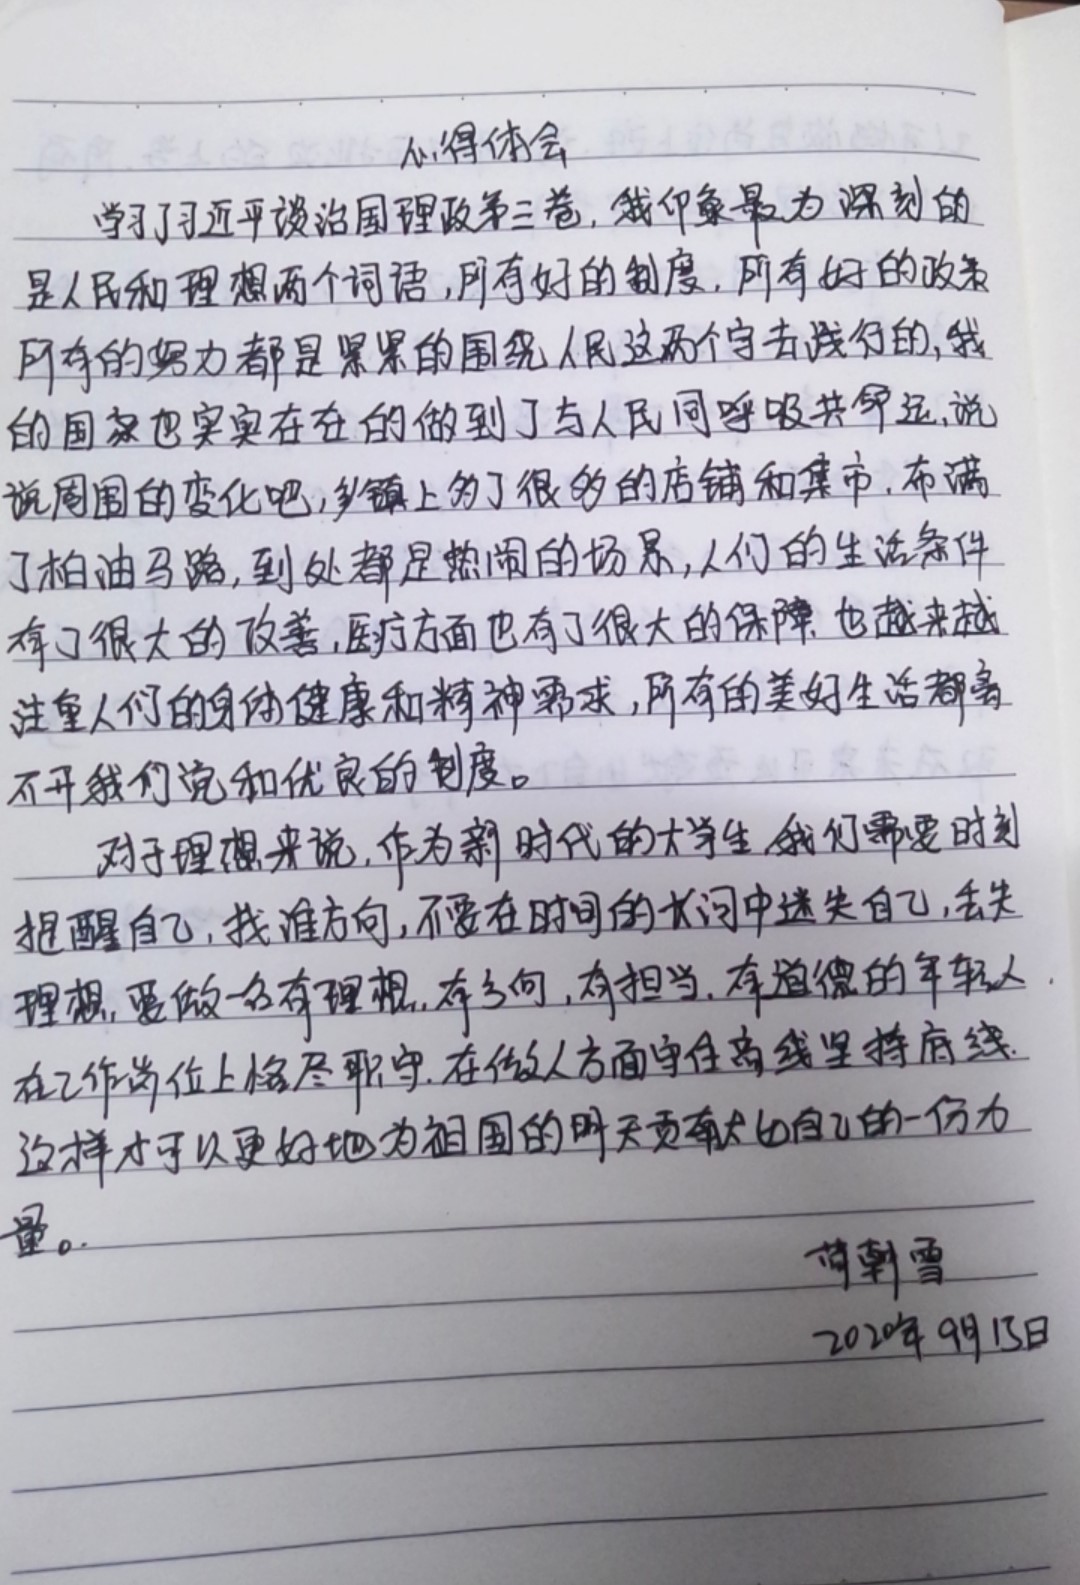 心得体会
学习了习近平谈治国理政第三卷,我印象最为深刻的
是人民和理想两个词语,所有好的制度,所有好的政策
所有的努力都是紧紧的围绕人民这两个字去践行的,我
的国家也实实在在的做到了与人民同呼吸共命运,说
说周围的变化吧,乡镇上多了很多的店铺和集市,布满
了柏油马路,到处都是热闹的场景,人们的生活条件
有了很大的改善,医疗方面也有了很大的保障 也越来越
注重人们的身体健康和精神需求,所有的美好生活都离
不开我们党和优良的制度。
对于理想来说,作为新时代的大学生,我们需要时刻
提醒自己,找准方向,不要在时间的长河中迷失自己,丢失
理想,要做一名有理想,有方向,有担当,有道德的年轻人,
在工作岗位上恪尽职守,在做人方面守住高线坚持底线.
这样才可以更好地为祖国的明天贡献出自己的一份力
量。
朝雪
2020年9月15日